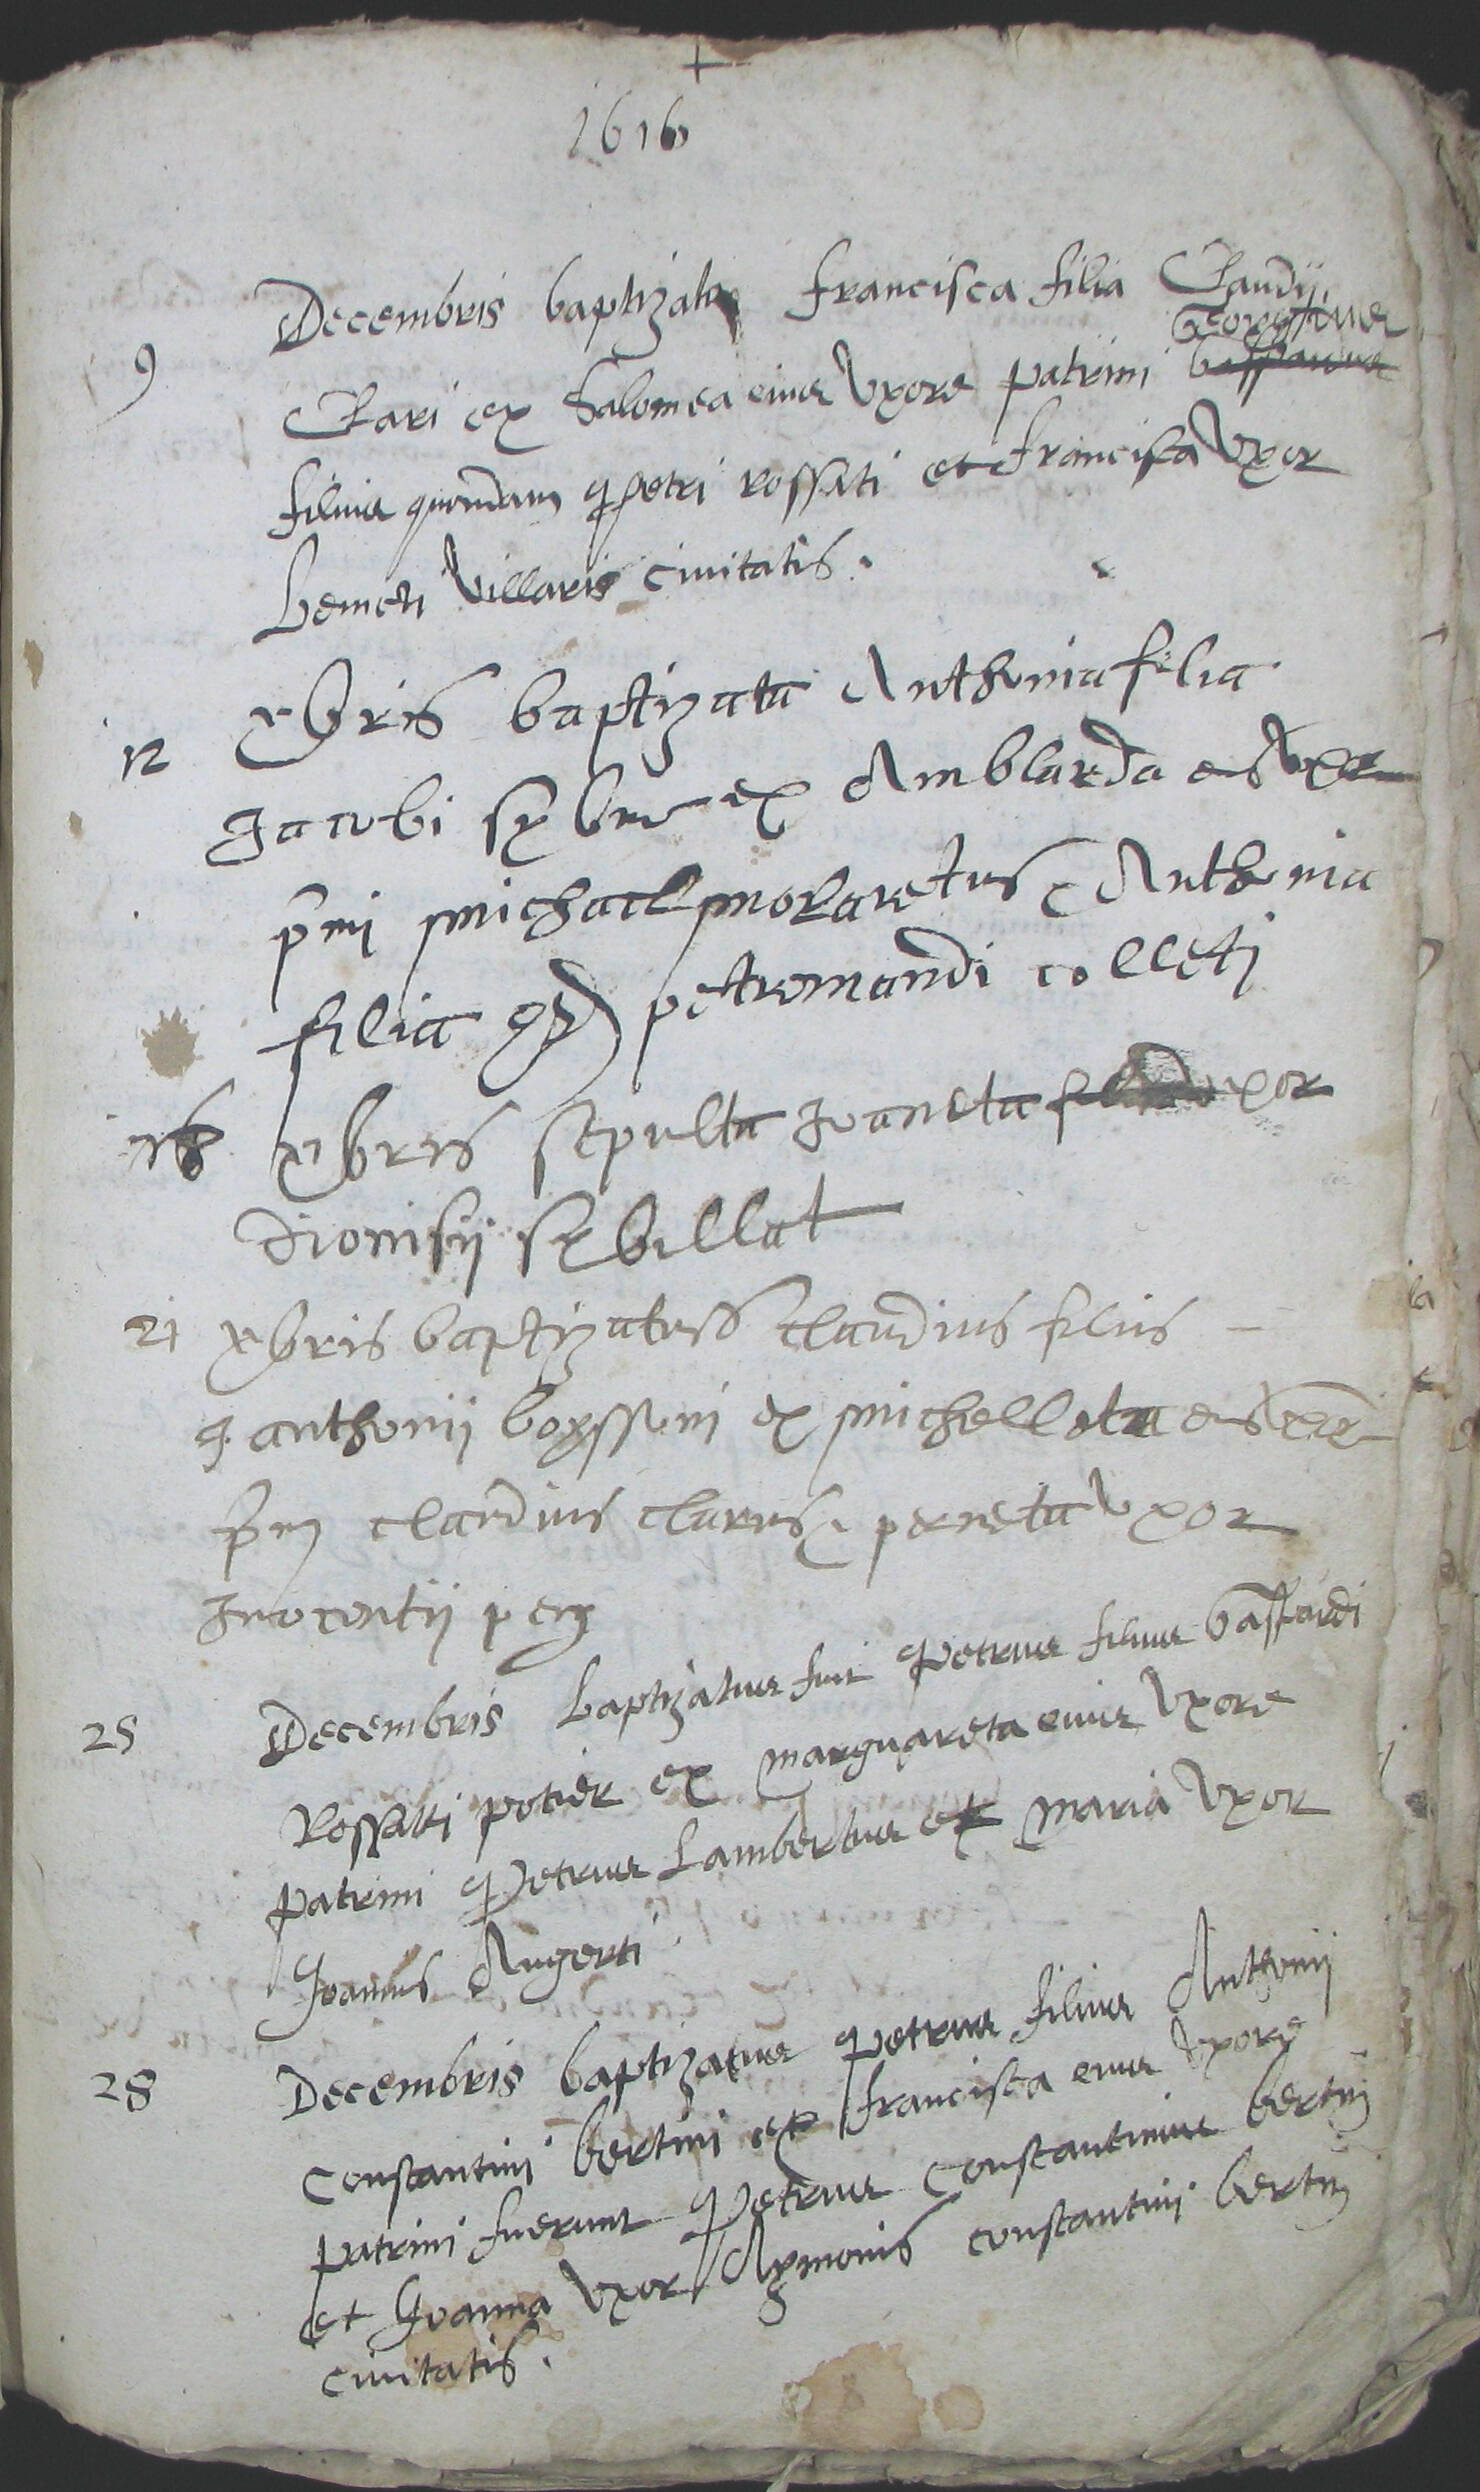 1616
Decembris baptizata francisca filia Claudij
9 Clari ex Salomea eius Uxore patrimi Georgius
filius quondam petri rossati et francisca Uxor
Villaris ciuitatis.
12 xbris baptizata Anthonia filia
Jacobi ex Amblarda eius uxe
pmi michael molaretus & Anthonia
filia qd petromandi colleti
xbris sepulta Joaneta uxor
Dionisij sybillat
21 xbris baptizatus claudius filius
anthonij boyssoni ex michelleta eius uxe
pmi claudius clarus & perneta Uxor
Inocentij
25 Decembris baptizatus fuit Petrus filius bastardi
Rossatti potier ex marguareta eius Uxore
patrini Petrus Lambertus et maria Uxor
Joannis Angerti
28 Decembris baptizatus Petrus filius Anthonij
Constantini bertini ex francisca eius Uxore
patrini fuerunt Petrus Constantinus bertini
et Joanna Uxor Aymonis constantini bertini
ciuitatis.